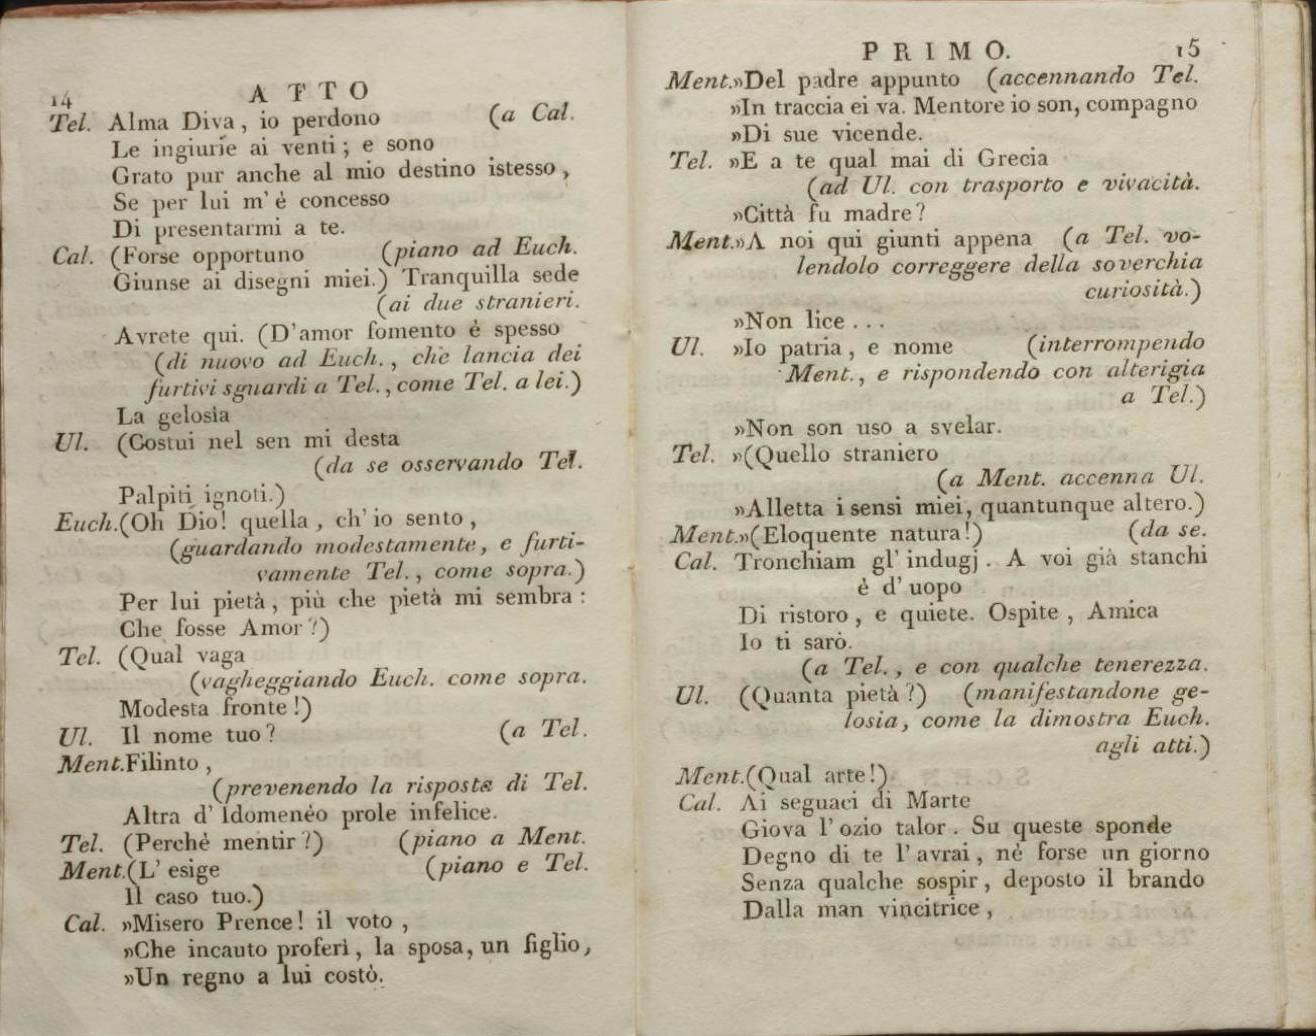 14 ATTO
Tel. Alma Diva, io perdono (a Cal.
Le ingiurie ai venti; e sono
Grato pur anche al mio destino istesso,
Se per lui m'è concesso
Di presentarmi a te.
Cal. (Forse opportuno (piano ad Euch.
Giunse ai disegni miei.) Tranquilla sede
(ai due stranieri.
Avrete qui. (D'amor fomento è spesso
(di nuovo ad Euch., che lancia dei
furtivi sguardi a Tel., come Tel. a lei.)
La gelosìa
Ul. (Costui nel sen mi desta
(da se osservando Tel.
Palpiti ignoti.)
Euch.(Oh Dio! quella, ch'io sento,
(guardando modestamente, e furti-
vamente Tel., come sopra.)
Per lui pietà, più che pietà mi sembra:
Che fosse Amor?)
Tel. (Qual vaga
(vagheggiando Euch. come sopra.
Modesta fronte!)
Ul. Il nome tuo? (a Tel.
Ment.Filinto,
(prevenendo la risposta di Tel.
Altra d'Idomenéo prole infelice.
Tel. (Perchè mentir?) (piano a Ment.
Ment.(L'esige (piano e Tel.
Il caso tuo.)
Cal. »Misero Prence! il voto,
»Che incauto proferì, la sposa, un figlio,
»Un regno a lui costò.
PRIMO. 15
Ment.»Del padre appunto (accennando Tel.
»In traccia ei va. Mentore io son, compagno
»Di sue vicende.
Tel. »E a te qual mai di Grecia
(ad Ul. con trasporto e vivacità.
»Città fu madre?
Ment.»A noi qui giunti appena (a Tel. vo-
lendolo correggere della soverchia
curiosità.)
»Non lice...
Ul. »Io patria, e nome (interrompendo
Ment., e rispondendo con alterigia
a Tel.)
»Non son uso a svelar.
Tel. »(Quello straniero
(a Ment. accenna Ul.
»Alletta i sensi miei, quantunque altero.)
Ment.»(Eloquente natura!) (da se.
Cal. Tronchiam gl'indugj. A voi già stanchi
è d'uopo
Di ristoro, e quiete. Ospite, Amica
Io ti sarò.
(a Tel., e con qualche tenerezza.
Ul. (Quanta pietà?) (manifestandone ge-
losia, come la dimostra Euch.
agli atti.)
Ment.(Qual arte!)
Cal. Ai seguaci di Marte
Giova l'ozio talor. Su queste sponde
Degno di te l'avrai, nè forse un giorno
Senza qualche sospir, deposto il brando
Dalla man vincitrice,